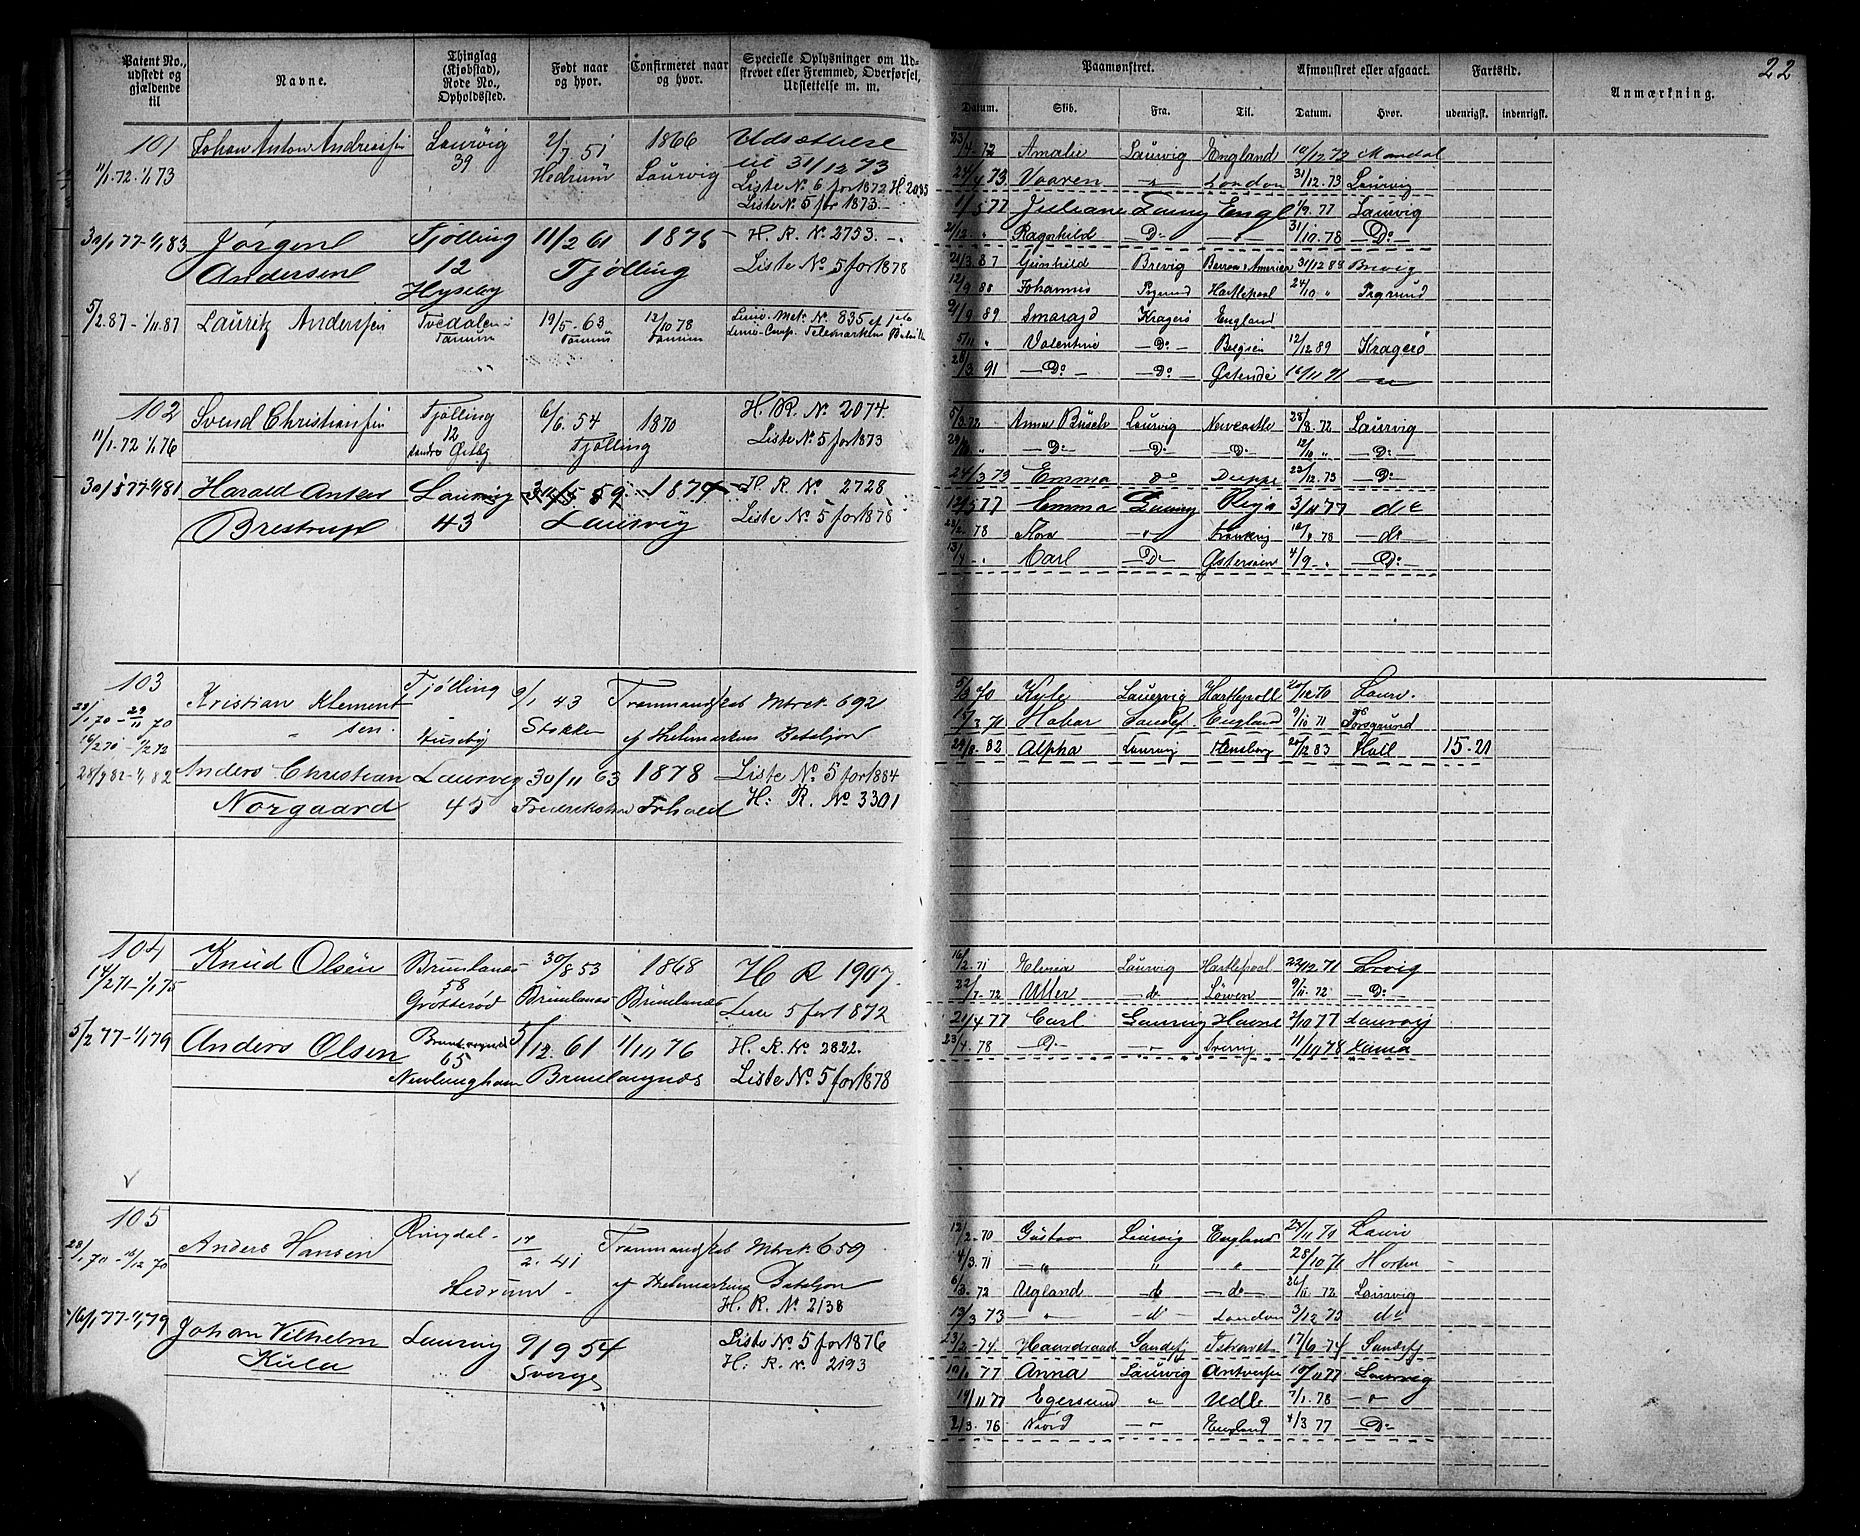 22
Patent No., udstedt og gjældende til
Navne.
Thinglag (Kjøbstad), Rode No., Opholdssted.
Født naar og hvor.
Confirmeret naar og hvor.
Specielle Oplysninger om Udstrevet eller Fremmed, Overførsel, Udslettelse m. m.
Paamønstret.
Afmønstret eller afgaaet.
Fartstid.
Anmærkning.
Datum. Skib. Fra. Til. Datum. Hvor. udenrigsk. indenrigsk.
101 Johan Anton Andreassen Laurvig 2/7 51 1866 Udsættelse
11/1.72-1/1 73 39 Hedrum Laurvig til 31/12 73
Liste No 6 for 1872 H 2035
Liste No 5 for 1873.-
30/1 77-1/1 83 Jørgen Tjølling 11/2 61 1876 H. R. No 2753.-
Andersen 12 Tjølling Liste No 5 for 1878
Hyseby
5/2.87-1/11.87 Lauritz Anderssen Tvedalen 19/5.63 12/10 78 No 835
Tanum Tanum Tanum Telemarkens
102 Svend Christianssen Tjølling 6/6.54 1870 H. R. No 2074.
11/1.72 1/1 76 12 Tjølling Liste No 5 for 1873
søndre Østby
30/5 77-1/1 81 Harald Anker Laurvig 59 1874 H. R. No 2728
Brestrup 43 Laurvig Liste No 5 for 1878
103 Kristian Klement- Tjølling 9/1 43 Tranmandskab Mtrck 692
28/1 70-29/11 70 " sen. Huseby Stokken af Thelemarkens Bataljon
16/2 71-1/2 72
28/9 82-1/1 82 Anders Christian Laurvig 30/11 63 1878 Liste No 5 for 1884
Norgaard 45 Frederikshavn H: R. No 3301
104 Knud Olsen Brunlanes 30/8 53 1868 H R 1907.
14/2 71-1/1 75 58 Brunlanes Brunlanes Liste 5 for 1872
Grotterød
5/2 77-1/1 79 Anders Olsen 5/12.61 1/11 76 H. R. No 2822.
65 Liste No 5 for 1878
105 Anders Hansen Ringdal- 17/2.41 Tranmandskab Mtrck 659
28/1.70-16/12 70 Hedrum- af Thelemarkens Bataljon
H. R. No 2138
16/1 77-1/1 79 Johan Vilhelm Laurvig 9/9 54 Liste No 5 for 1876
Kula Sverge H: R. n. 2193
23/4-72 Amalie Laurvig England 10/12 72 Mandal
24/4 73 Vaaren " London 31/12.73 Laurvig
1/5 77 Juliane Laurvig Engl 1/9.77 Laurvig
21/12 " Ragnhild Do " 31/10.78 Do
21/3.87 Gunhild Brevig 31/12 88 Brevig
12/9 88 Johannes Hartlepool 24/10 "
21/9 89 Smaragd Kragerø England
5/11 " Valentine Do Belgien 12/12 89 Kragerø
28/3 91 Do Do Østende 16/11 91 "
5/3 72 Anna Busch Laurvig Newcastle 28/8.72 Laurvig
29/10 " Do Do Do 12/10 " Do
24/3 73 Emma do Dieppe 23/12.73 Do
12/5 77 Emma Laurvig Riga 3/11 77 do
23/2.78 Flora " 10/8.78 do
13/7 - " Carl Do Østersøen 4/9 - " Do
5/3 70 Laurvig Hartlepoll 20/12 70 Laurv.
17/3.71 Habar Sandef England 9/10 71 Porsgrund
24/8.82 Alpha Laurvig Flensborg 20/12 83 Hull 15-21
16/2.71 Elvira Laurvig Hartlepool 22/12 71 Lvvig
22/7.72 Utter do Löwen 9/11.72 Do
21/4 77 Carl Laurvig Havre 2/10 77 Laurvig
23/4.78 Do " 11/11 78
12/2-70 Gustav Laurvig England 24/11 70 Laurv
4/3.71 " " " 28/10 71 Horten
6/3.72 Ugland do do 26/11 72 Laurvig
13/3 73 " do London 3/12 73 do
23/2-74 Haardraad Sandefj 17/6 74 Sandefj
19/1 77 Anna Laurvig Antverpen 10/11 77 Laurvig
14/11 77 Egersund " Udle 7/1.78 "
2/3.76 Noord " England 4/3 77 Do